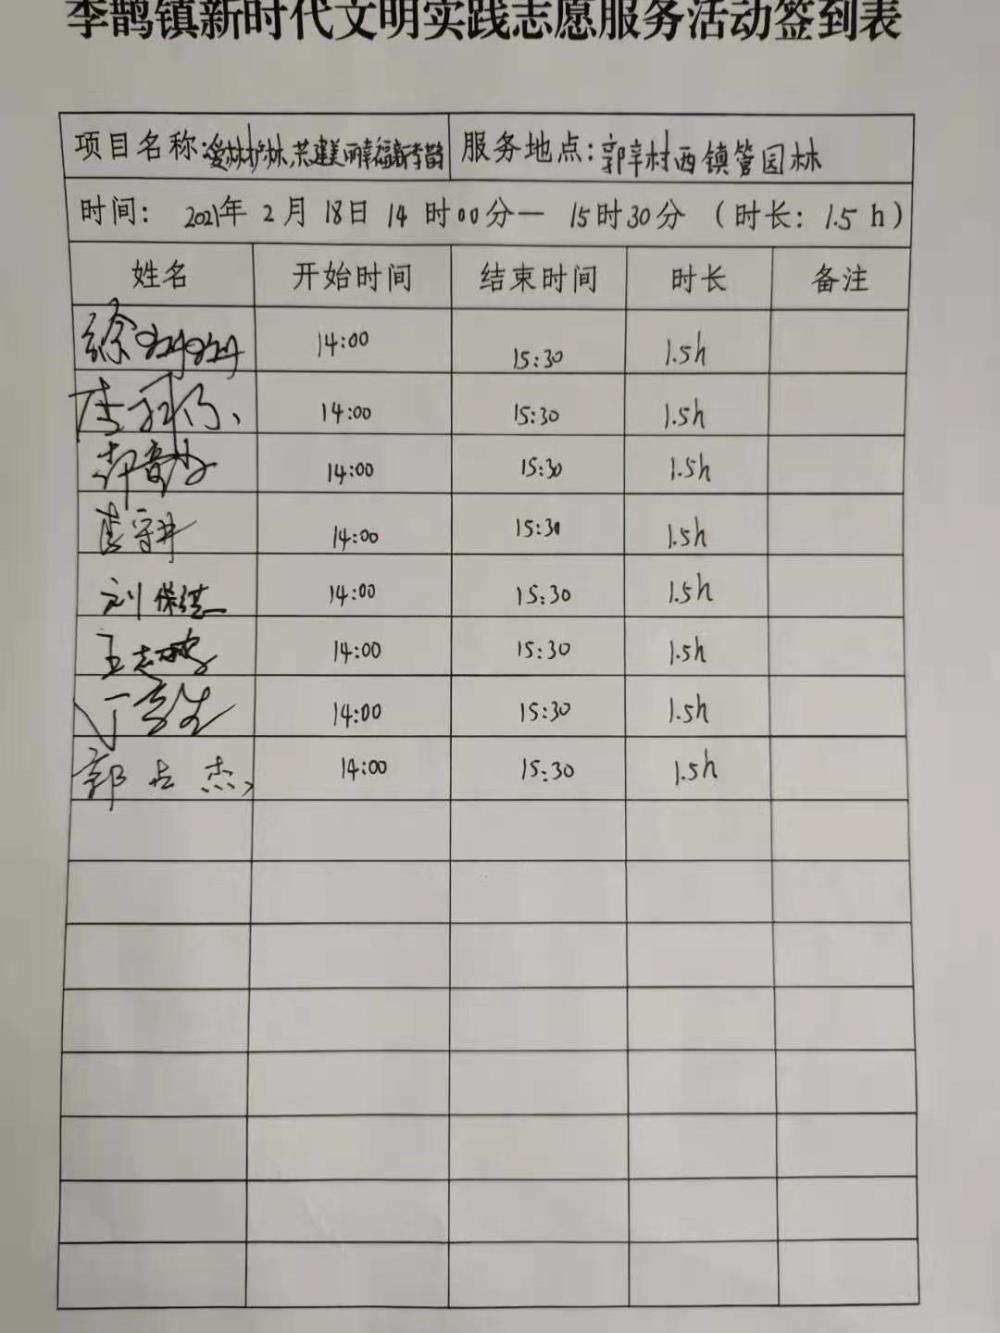 李鹊镇新时代文明实践志愿服务活动签到表
项目名称:爱林护林,共建美丽幸福新李鹊 服务地点:郭辛村西镇管园林
时间: 2021年 2月18日14时00分— 15时30分 (时长: 1.5 h)
姓名 开始时间 结束时间 时长 备注
徐 14:00 15:30 1.5h
14:00 15:30 1.5h
14:00 15:30 1.5h
李守 14:00 15:30 1.5h
刘保 14:00 15:30 1.5h
王志 14:00 15:30 1.5h
丁 14:00 15:30 1.5h
郭 杰 14:00 15:30 1.5h